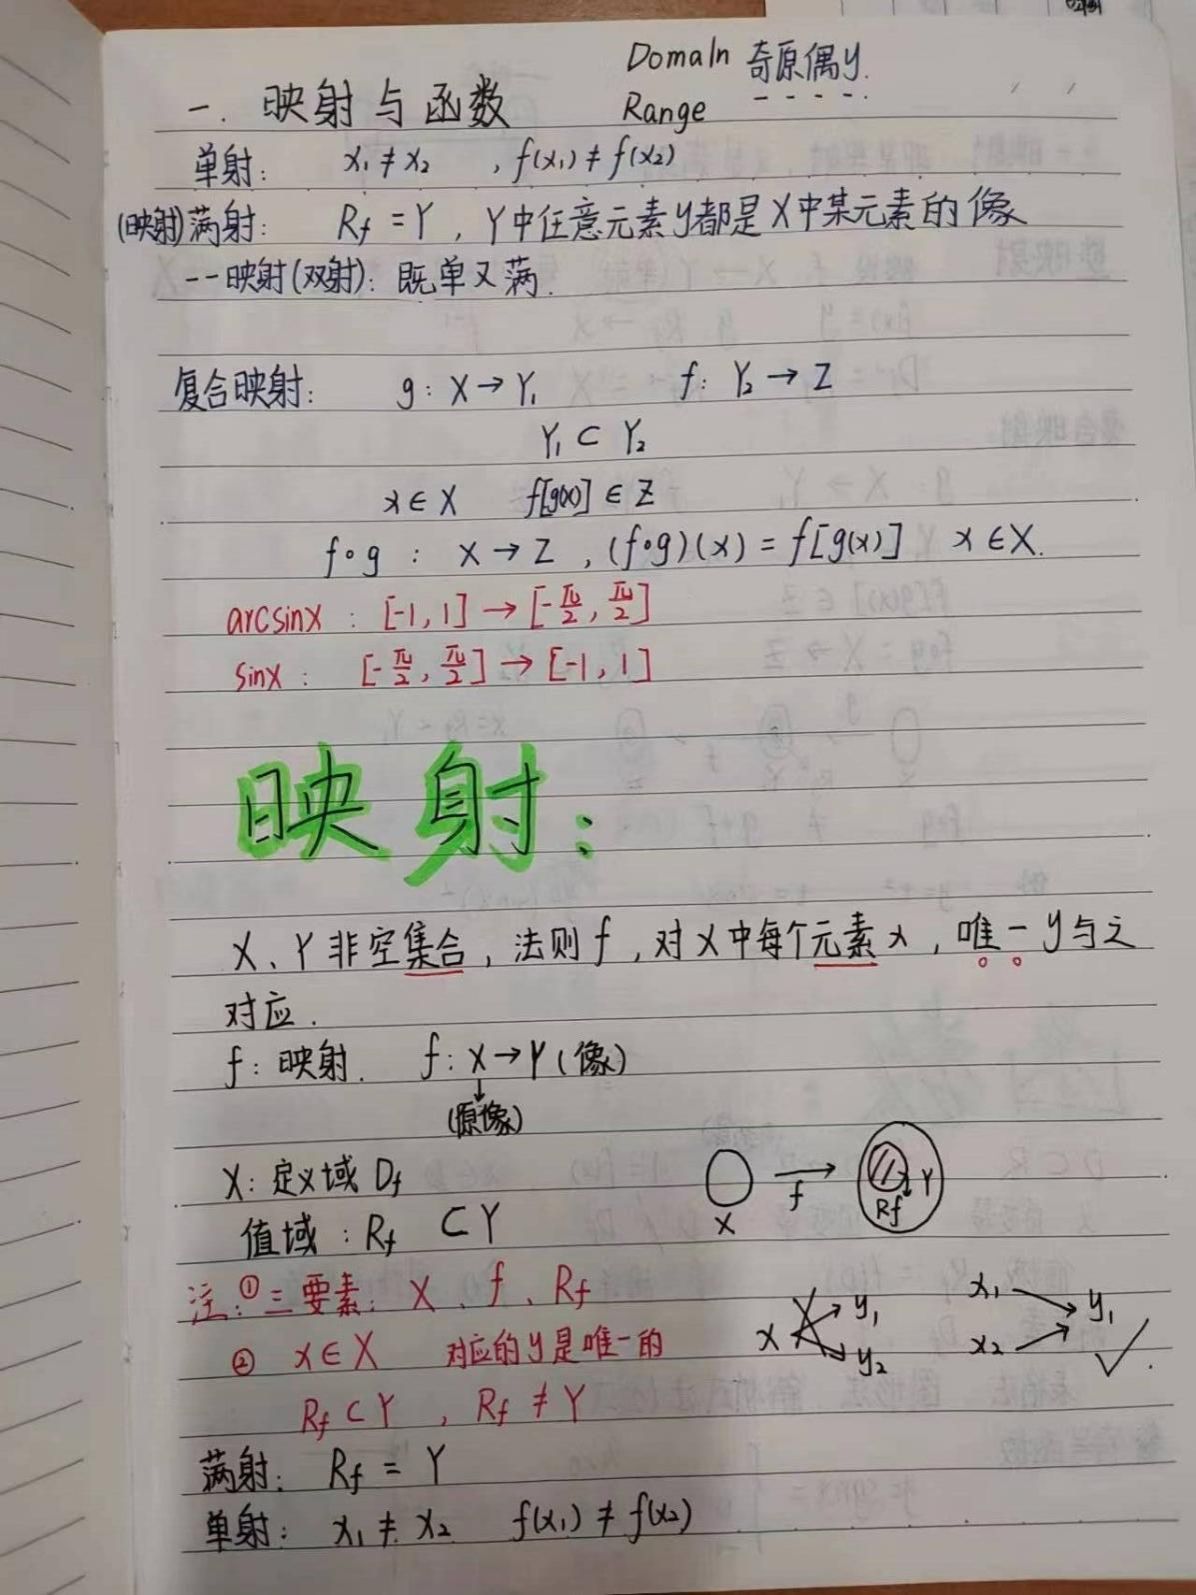 Domain 奇原偶y.
一. 映射与函数 Range
单射: x₁≠x₂ , f(x₁)≠f(x₂)
(映射)满射: Rf=Y, Y中任意元素y都是X中某元素的像
一一映射(双射): 既单又满.
复合映射: g: X→Y₁ f: Y₂→Z
Y₁⊂Y₂
x∈X f[g(x)]∈Z
f∘g : X→Z , (f∘g)(x)=f[g(x)] x∈X.
arcsinx : [-1,1]→[-π/2, π/2]
sinx : [-π/2, π/2]→[-1,1]
映射:
X、Y非空集合, 法则f, 对X中每个元素x, 唯一y与之
对应.
f: 映射. f: X→Y(像)
(原像)
X: 定义域 Df
X f Rf Y
值域: Rf ⊂Y
注: ①三要素: X、f、Rf
x y₁ y₂ x₁ x₂ y₁
② x∈X 对应的y是唯一的
Rf⊂Y , Rf≠Y
满射: Rf=Y
单射: x₁≠x₂ f(x₁)≠f(x₂)